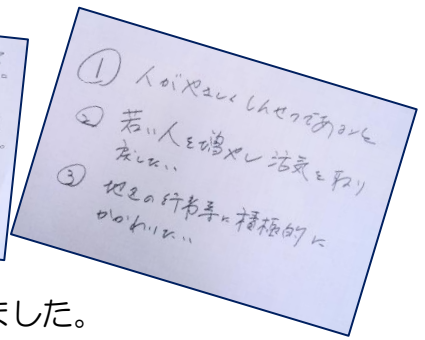 ① 人がやさしくしんせつであること
② 若い人を増やし活気を取り
戻したい
③ 地元の行事等に積極的に
かかわりたい
ました。